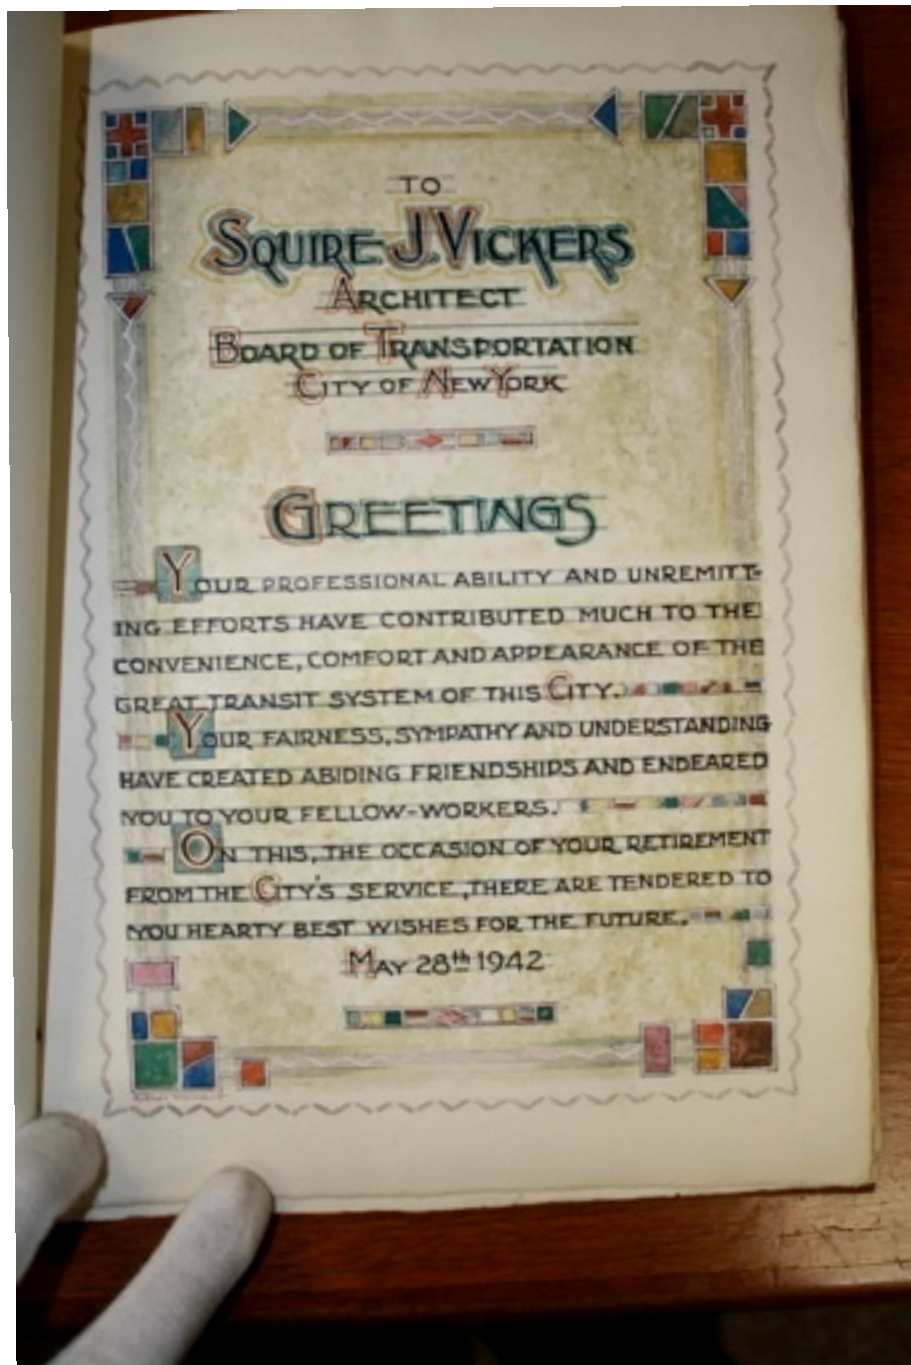 TO
SQUIRE J. VICKERS
ARCHITECT
BOARD OF TRANSPORTATION
CITY OF NEW YORK
GREETINGS
YOUR PROFESSIONAL ABILITY AND UNREMITT-
ING EFFORTS HAVE CONTRIBUTED MUCH TO THE
CONVENIENCE, COMFORT AND APPEARANCE OF THE
GREAT TRANSIT SYSTEM OF THIS CITY.
YOUR FAIRNESS, SYMPATHY AND UNDERSTANDING
HAVE CREATED ABIDING FRIENDSHIPS AND ENDEARED
YOU TO YOUR FELLOW-WORKERS.
ON THIS, THE OCCASION OF YOUR RETIREMENT
FROM THE CITY'S SERVICE, THERE ARE TENDERED TO
YOU HEARTY BEST WISHES FOR THE FUTURE.
MAY 28th 1942